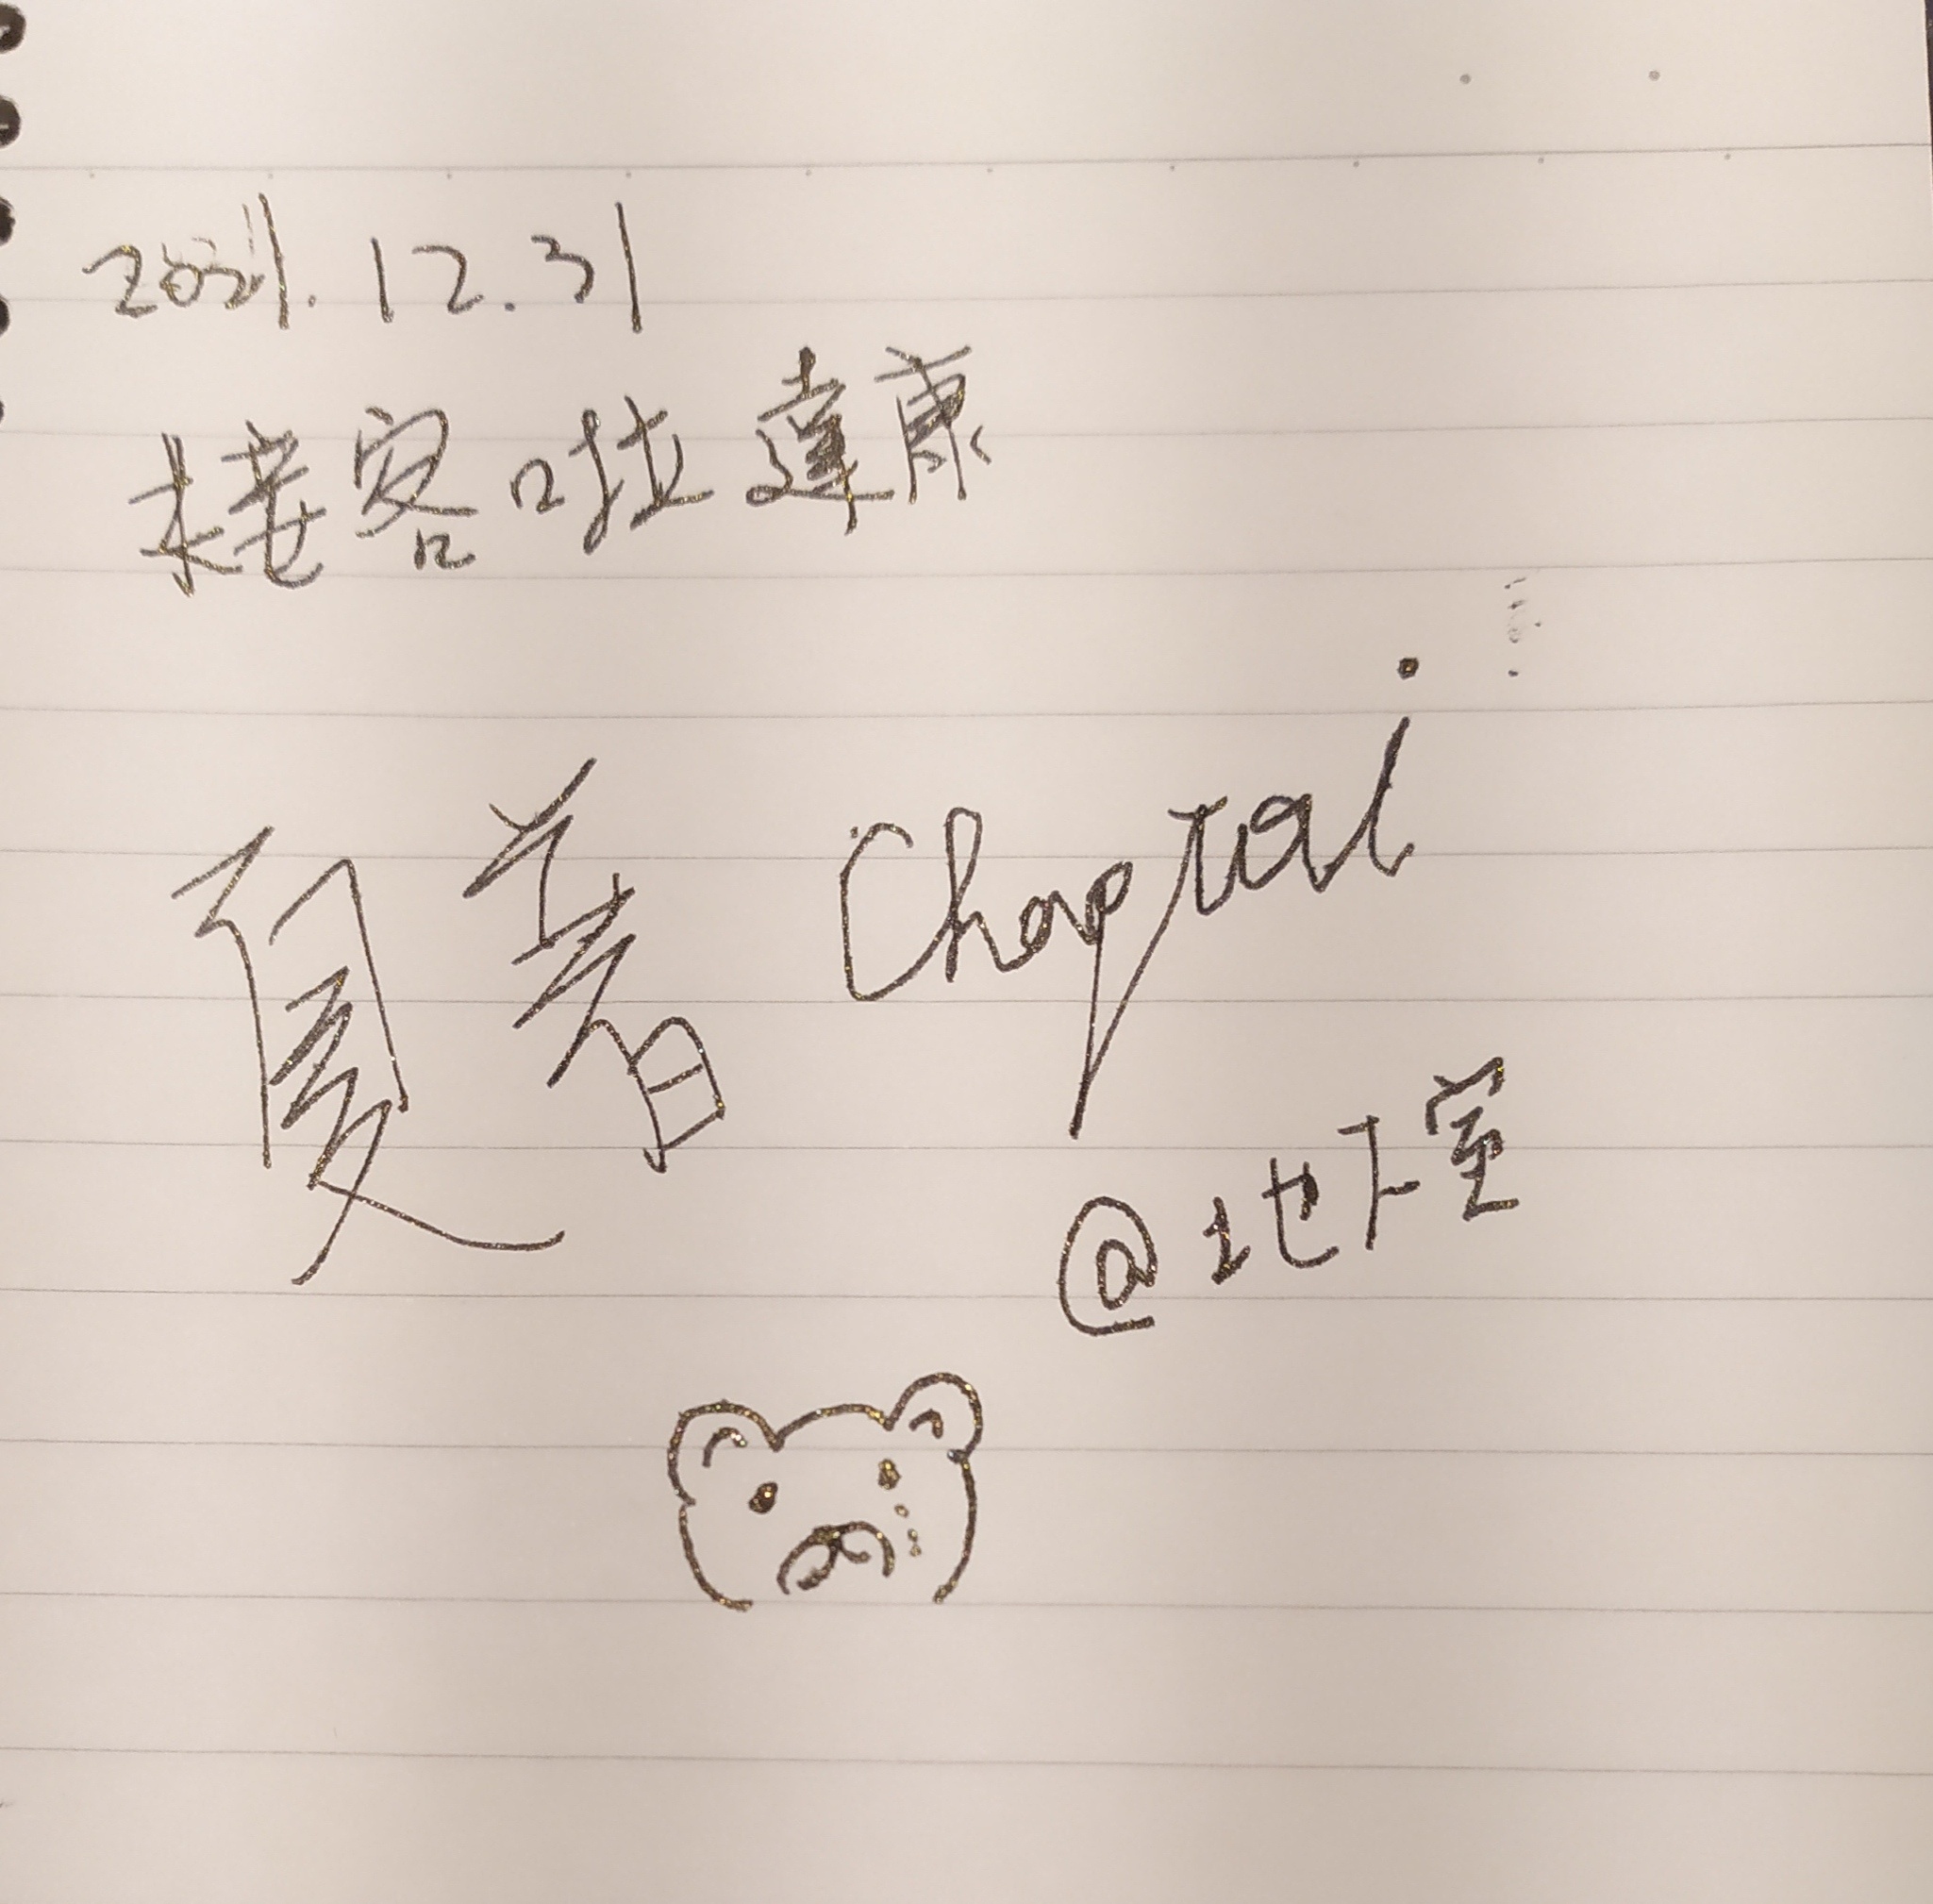 2021.12.31
接客啦達康
夏普 Chaptai
@地下室